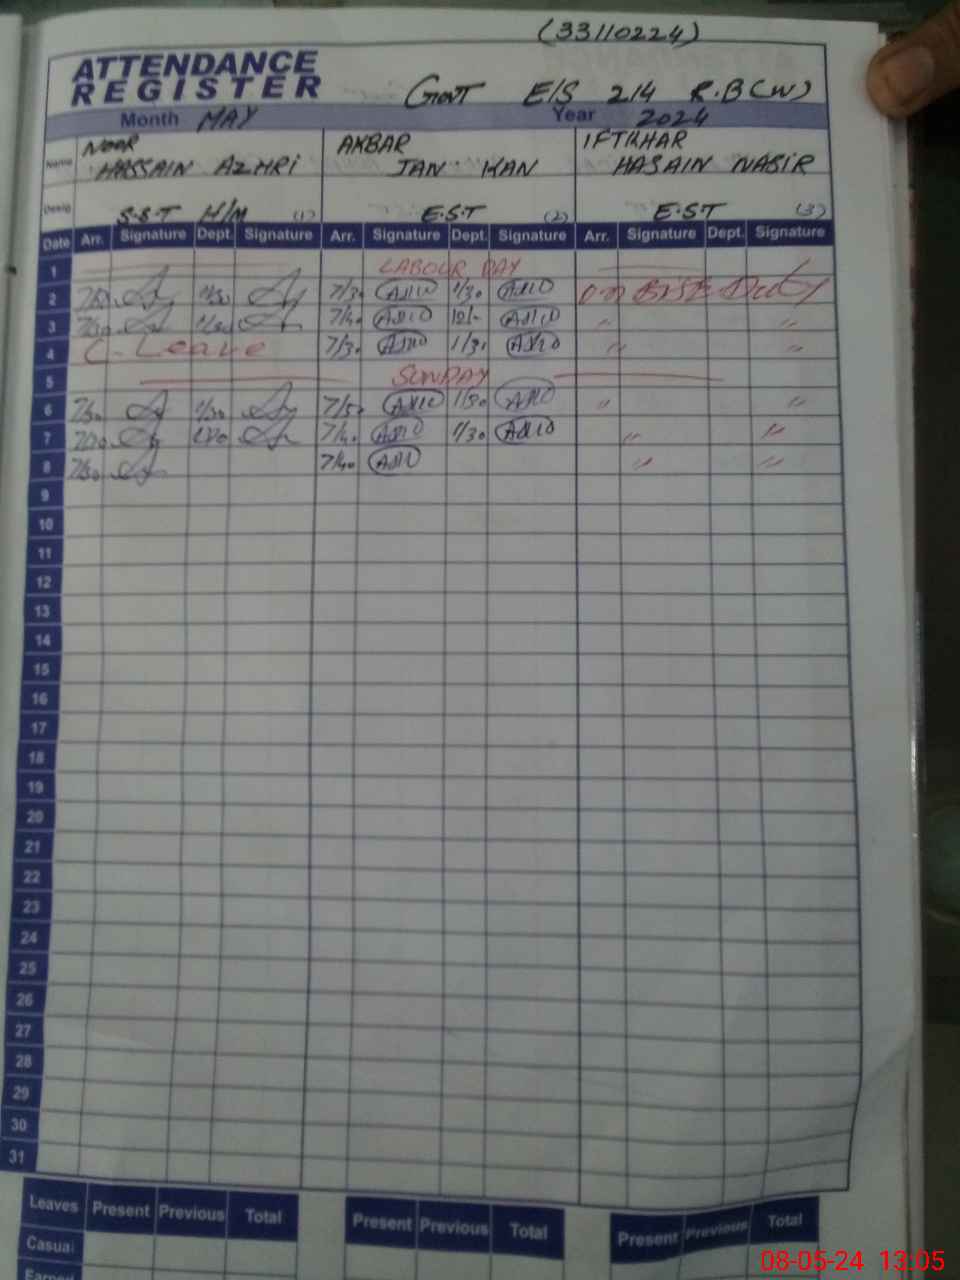 (33110224)
ATTENDANCE
REGISTER
GOVT E/S 214 R.B (W)
Month MAY Year 2024
Name NOOR AKBAR IFTIKHAR
HASSAIN AZHRI JAN KAN HASAIN NASIR
Desig S.S.T H/M (1) E.S.T (2) E.S.T (3)
Date Arr. Signature Dept. Signature Arr. Signature Dept. Signature Arr. Signature Dept. Signature
1 LABOUR DAY
2 7/30 1/30 7/30 1/30 on Duty
3 7/30 7/40 12/- 〃 〃
4 C-Leave 7/30 1/31 〃 〃
5 SUNDAY
6 7/30 1/30 7/50 1/30 〃 〃
7 7/30 1/30 7/40 1/30 〃 〃
8 7/30 7/40 〃 〃
9
10
11
12
13
14
15
16
17
18
19
20
21
22
23
24
25
26
27
28
29
30
31
Leaves Present Previous Total Present Previous Total Present Previous Total
Casual
Earned
08-05-24 13:05